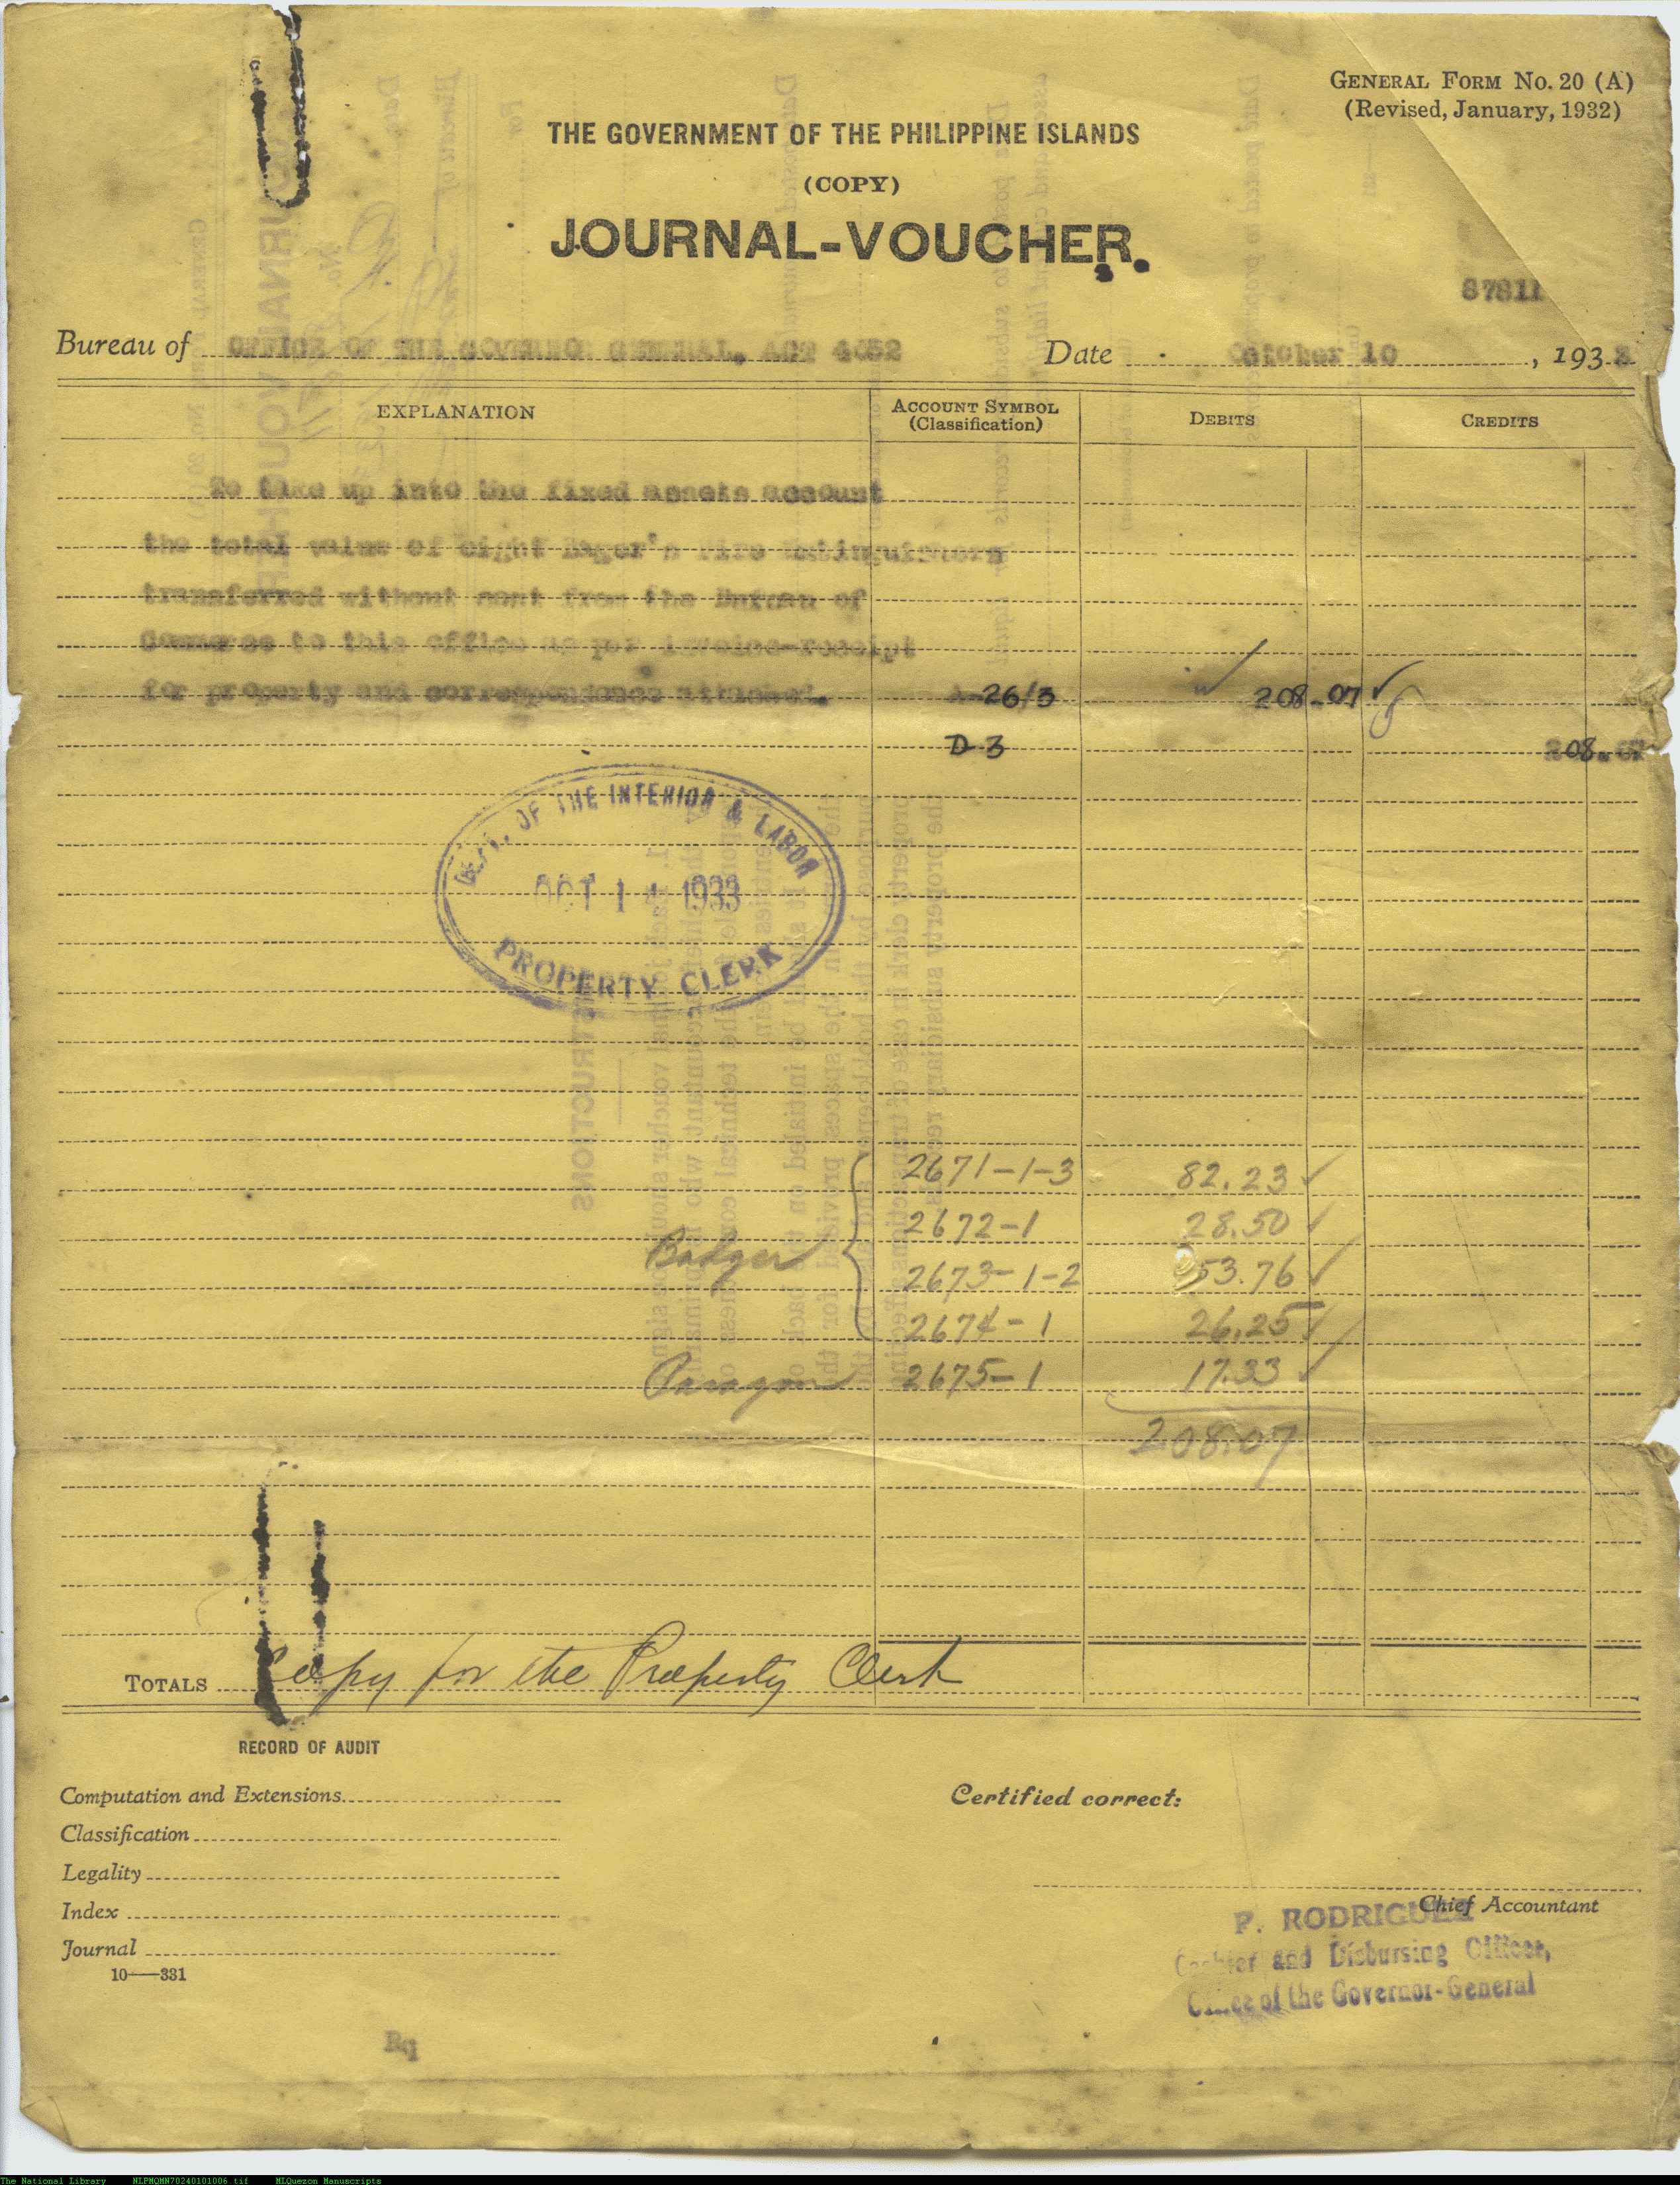 GENERAL FORM No. 20 (A)
(Revised, January, 1932)
THE GOVERNMENT OF THE PHILIPPINE ISLANDS
(COPY)
JOURNAL-VOUCHER.
87811
Bureau of OFFICE OF THE GOVERNOR GENERAL, ACT 4052 Date October 10, 193
EXPLANATION ACCOUNT SYMBOL (Classification) DEBITS CREDITS
To take up into the fixed assets account
the total value of eight fire extinguishers
transferred without cost from the Bureau of
Commerce to this office as per invoice-receipt
for property and correspondence attached. A-26/3 208-07
D-3 208.07
DEPT. OF THE INTERIOR & LABOR
OCT 14 1933
PROPERTY CLERK
2671-1-3 82.23
2672-1 28.50
Badger 2673-1-2 53.76
2674-1 26.25
Paragon 2675-1 17.33
208.07
TOTALS Copy for the Property Clerk
RECORD OF AUDIT
Computation and Extensions
Certified correct:
Classification
Legality
Index
Chief Accountant
F. RODRIGUEZ
Journal
Cashier and Disbursing Officer,
10—331
Office of the Governor-General
Rq
The National Library NLPMQMN70240101006.tif MLQuezon Manuscripts